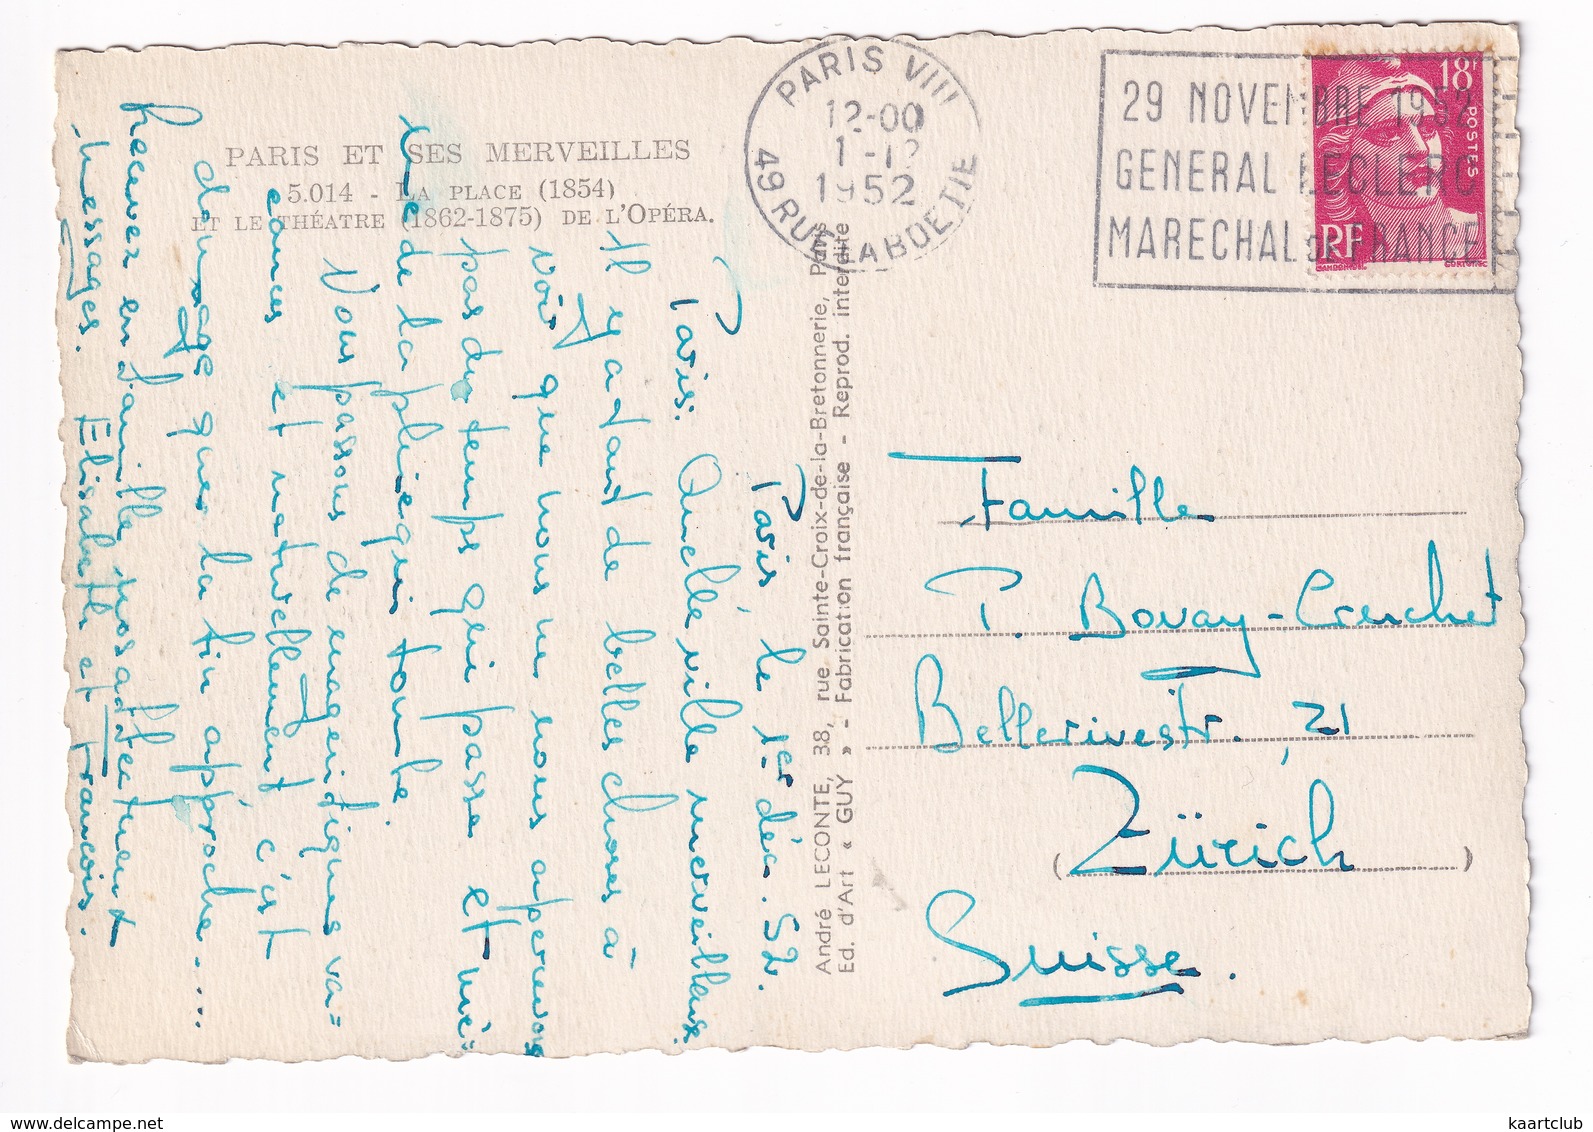 PARIS ET SES MERVEILLES
5.014 - LA PLACE (1854)
ET LE THÉATRE (1862-1875) DE L'OPÉRA.
PARIS VIII
12-00
1-12
1952
49 RUE LA BOETIE
29 NOVEMBRE 1952
GENERAL LECLERC
MARECHAL DE FRANCE
18F
POSTES
RF
GANDON DEL.
CORTOT SC
Paris le 1er déc. 52.
Paris. Quelle ville merveilleuse.
Il y a tant de belles choses à
voir que nous ne nous apercevons
pas du temps qui passe et mê=
me de la pluie qui tombe.
Nous passons de magnifiques va=
cances et naturellement c'est
dommage que la fin approche....
Recevez en famille nos affectueux
messages. Elisabeth et François.
André LECONTE, 38, rue Sainte-Croix-de-la-Bretonnerie, Paris
Ed. d'Art « GUY » - Fabrication française - Reprod. interdite
Famille
P. Bovay-Cruchet
Bellerivestr. 21
(Zürich)
Suisse.
kaartclub
www.delcampe.net